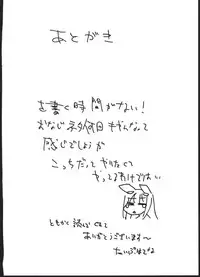 あとがき
を書く時間がない!
おなじネタ何回もやんなって
感じでしょうが
こっちだって やりたくて
やってるわけではない
ともかく 読んでくれて
ありがとうございます〜